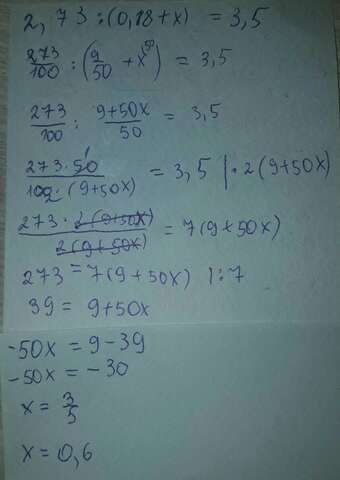 2,73 : (0,18 + x) = 3,5
273/100 : (9/50 + x^50) = 3,5
273/100 : (9+50x)/50 = 3,5
273·50/100·(9+50x) = 3,5 |·2(9+50x)
273·2(9+50x)/2(9+50x) = 7(9+50x)
273 = 7(9+50x) |:7
39 = 9+50x
-50x = 9-39
-50x = -30
x = 3/5
x = 0,6